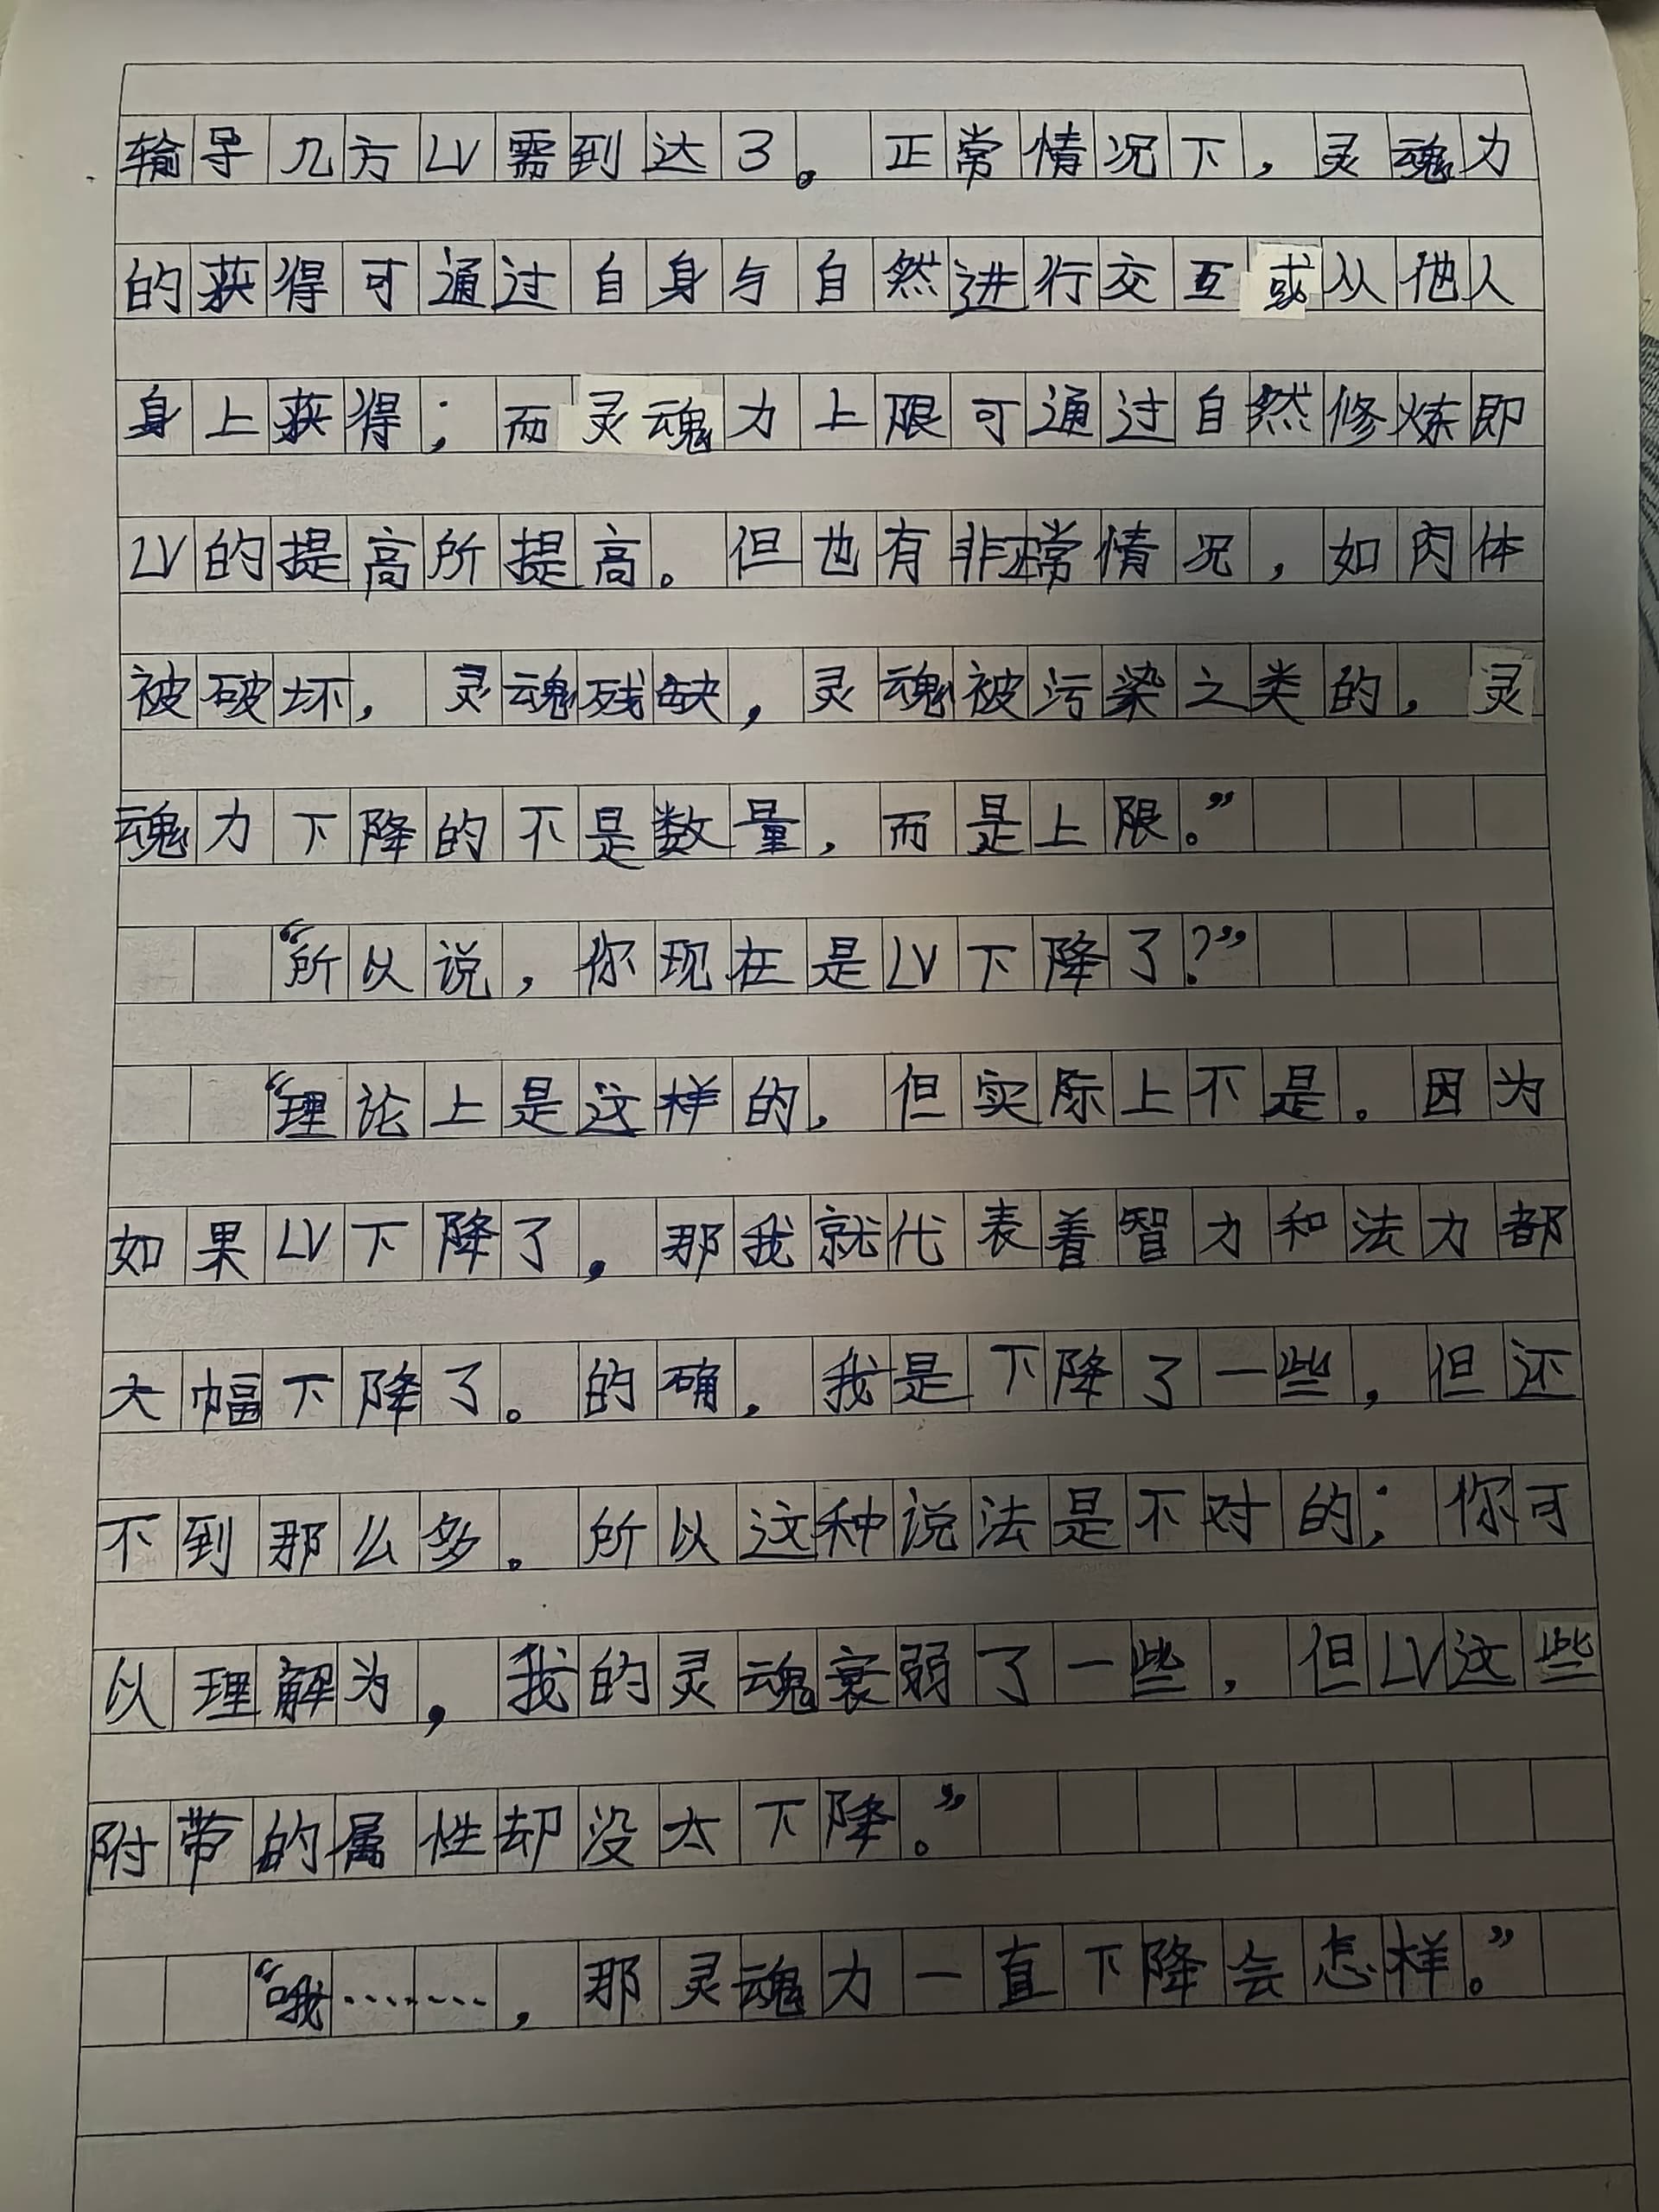 输导几方LV需到达3。正常情况下，灵魂力
的获得可通过自身与自然进行交互或从他人
身上获得；而灵魂力上限可通过自然修炼即
LV的提高所提高。但也有非正常情况，如肉体
被破坏，灵魂残缺，灵魂被污染之类的，灵
魂力下降的不是数量，而是上限。”
“所以说，你现在是LV下降了？”
“理论上是这样的，但实际上不是。因为
如果LV下降了，那我就代表着智力和法力都
大幅下降了。的确，我是下降了一些，但还
不到那么多。所以这种说法是不对的；你可
以理解为，我的灵魂衰弱了一些，但LV这些
附带的属性却没太下降。”
“哦………，那灵魂力一直下降会怎样。”